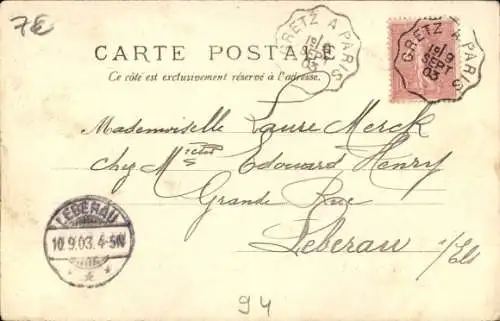 7E
CARTE POSTALE
Ce côté est exclusivement réservé à l'adresse.
GRETZ A PARIS
1E/9
SEPT
03
GRETZ A PARIS
1E/9
SEPT
03
Mademoiselle Laure Merck
chez Mr Edouard Henry
Grande Rue
Leberau
i/Els
LEBERAU
10.9.03.4-5N
94